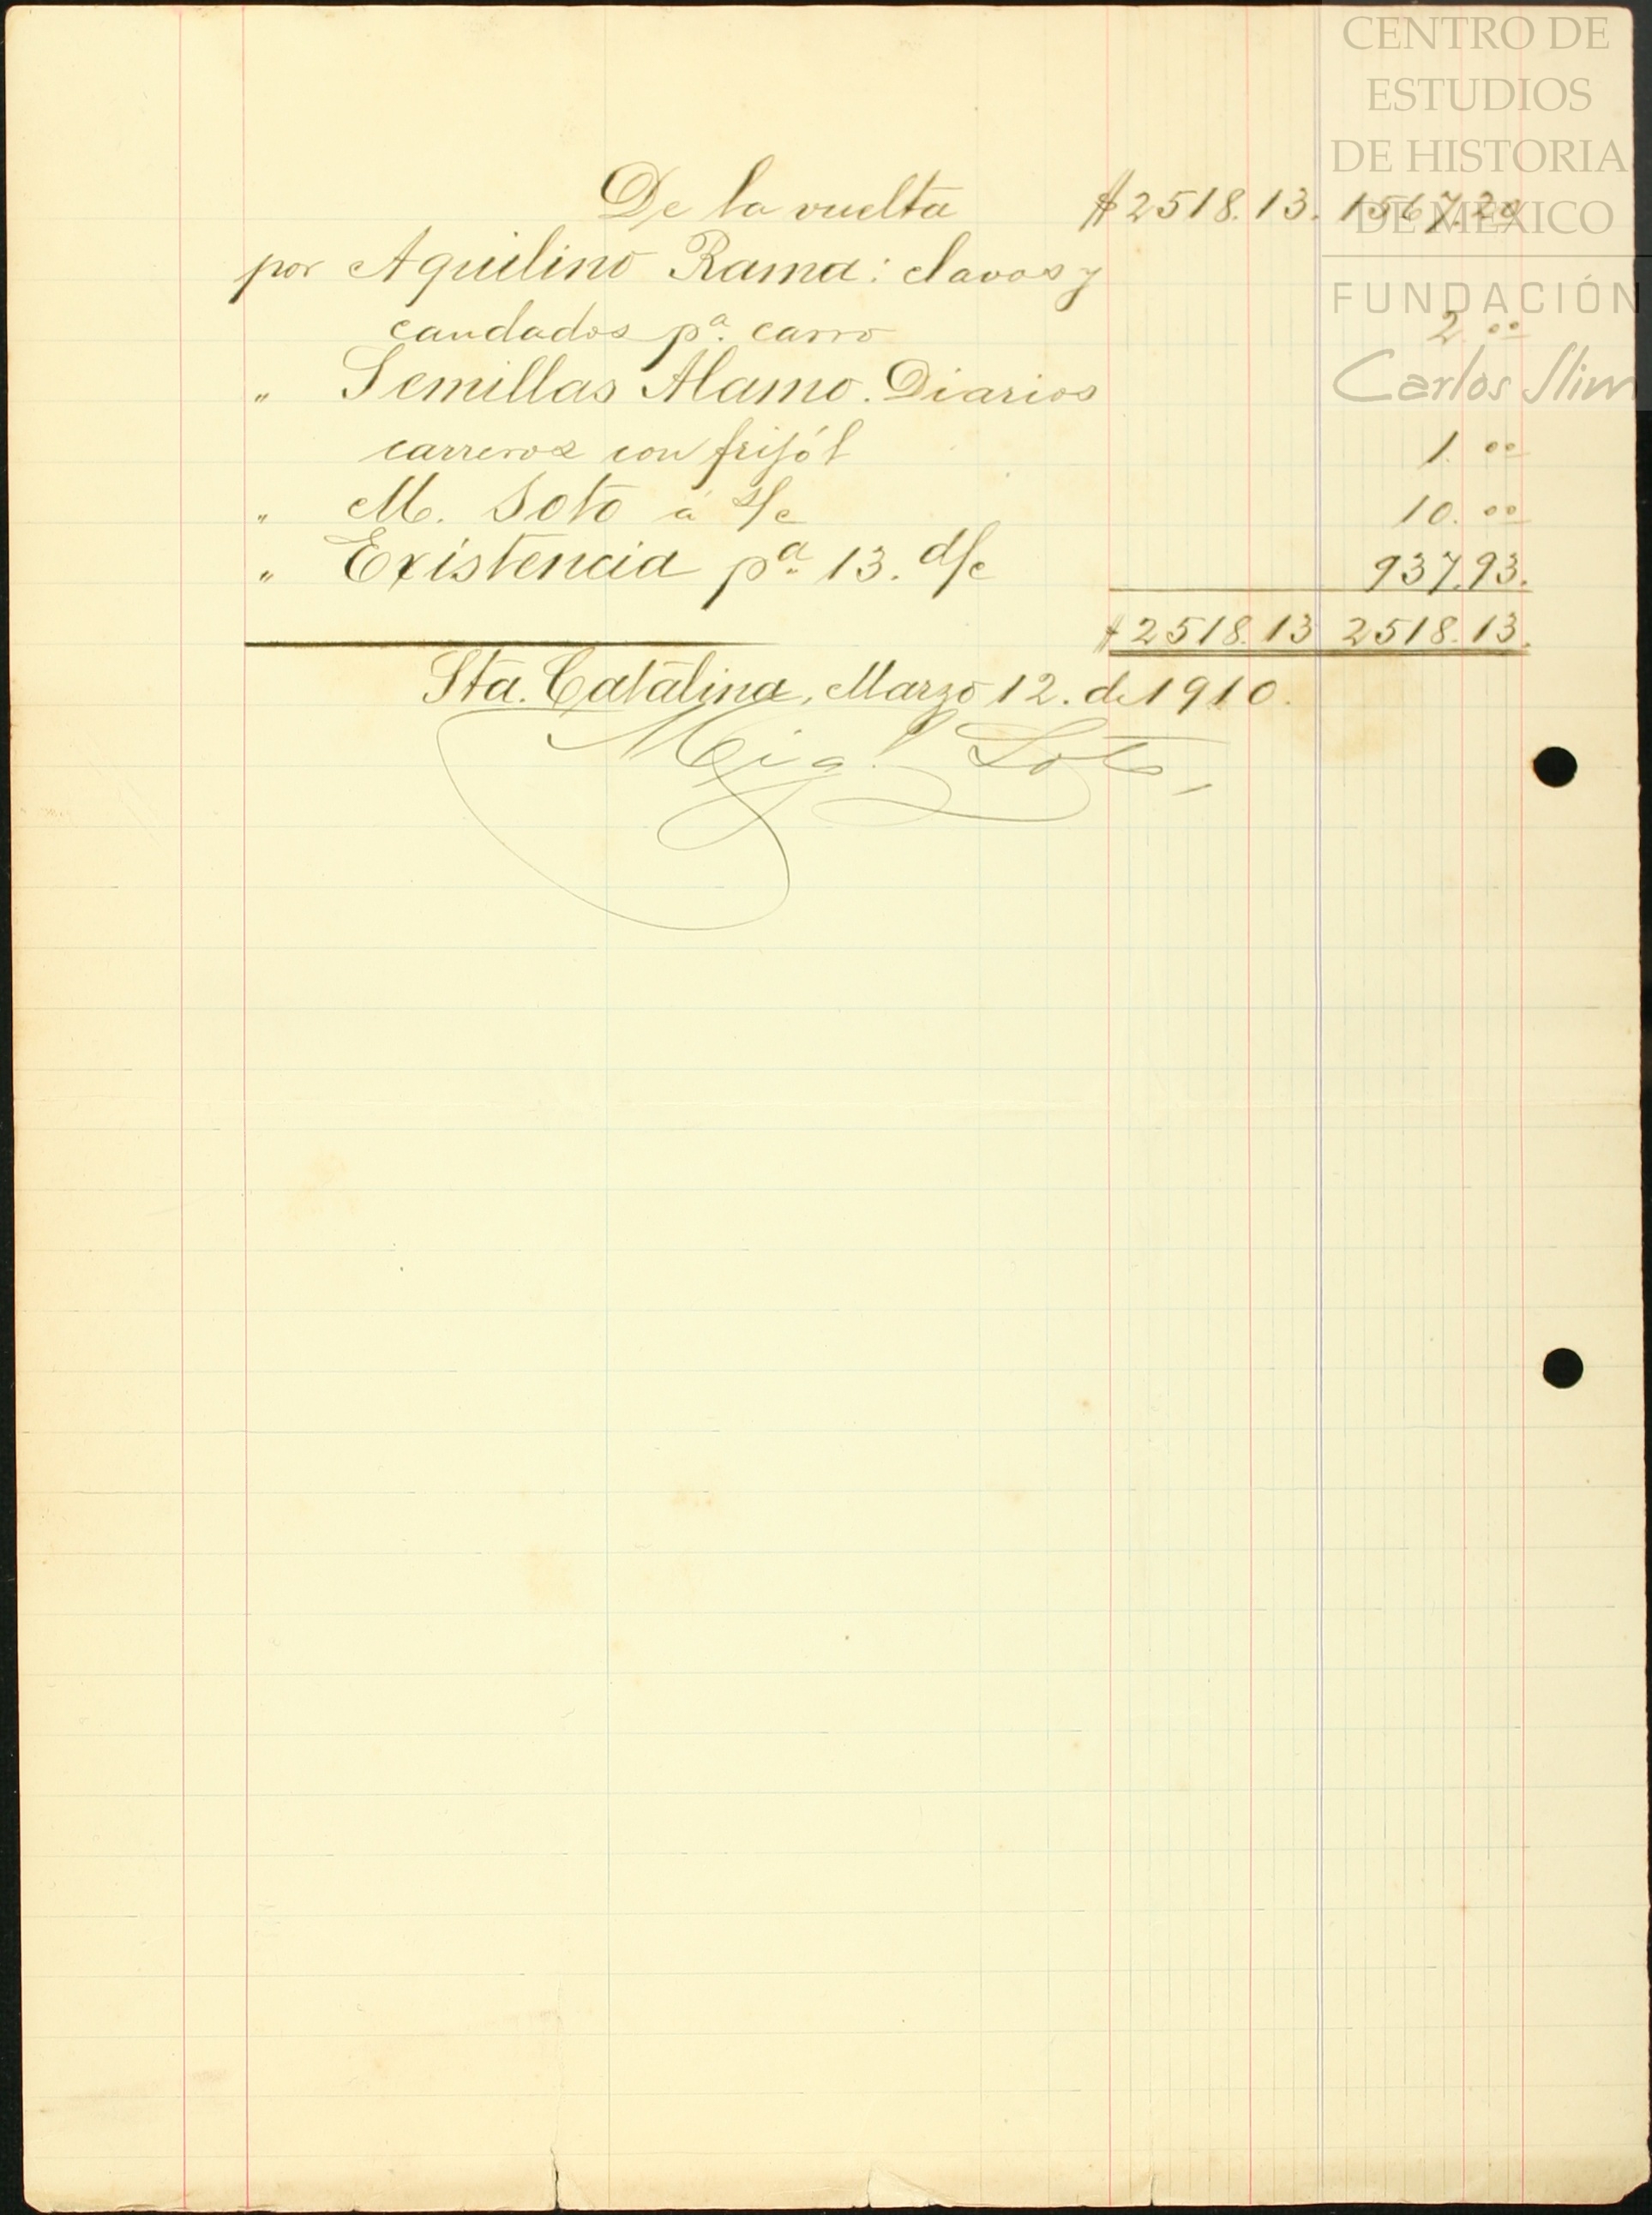 CENTRO DE
ESTUDIOS
DE HISTORIA
DE MÉXICO
FUNDACIÓN
Carlos Slim
De la vuelta $2518.13. 1567.20
por Aquilino Rama: clavos y
candados pª. carro 2.00
" Semillas Alamo. Diarios
carreros con frijól 1.00
" M. Soto á s/c 10.00
" Existencia pª 13. d/c 937.93.
$2518.13 2518.13.
Sta. Catalina, Marzo 12. de 1910.
Migl. Soto,